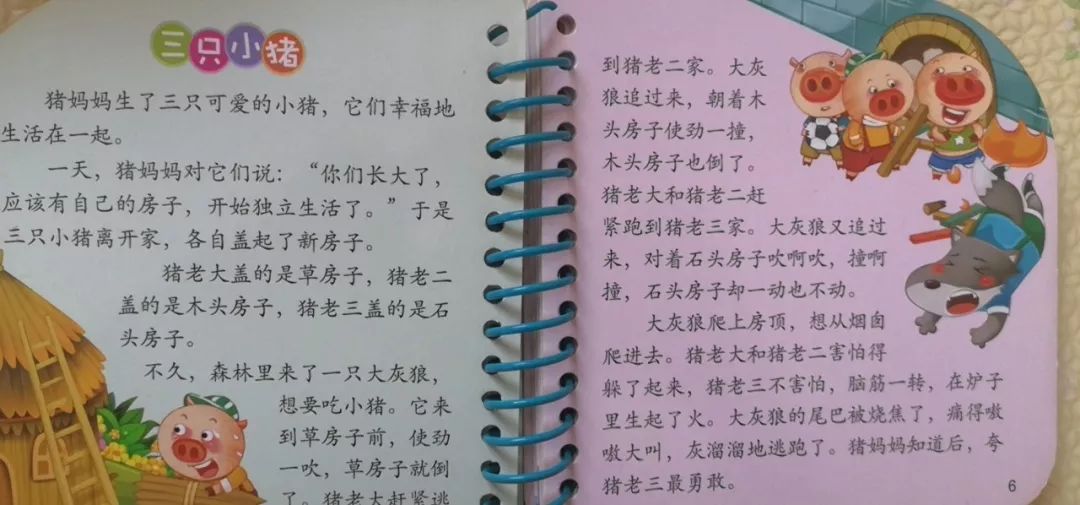 三只小猪
猪妈妈生了三只可爱的小猪，它们幸福地
生活在一起。
一天，猪妈妈对它们说：“你们长大了，
应该有自己的房子，开始独立生活了。”于是
三只小猪离开家，各自盖起了新房子。
猪老大盖的是草房子，猪老二
盖的是木头房子，猪老三盖的是石
头房子。
不久，森林里来了一只大灰狼，
想要吃小猪。它来
到草房子前，使劲
一吹，草房子就倒
了。猪老大赶紧逃
到猪老二家。大灰
狼追过来，朝着木
头房子使劲一撞，
木头房子也倒了。
猪老大和猪老二赶
紧跑到猪老三家。大灰狼又追过
来，对着石头房子吹啊吹，撞啊
撞，石头房子却一动也不动。
大灰狼爬上房顶，想从烟囱
爬进去。猪老大和猪老二害怕得
躲了起来，猪老三不害怕，脑筋一转，在炉子
里生起了火。大灰狼的尾巴被烧焦了，痛得嗷
嗷大叫，灰溜溜地逃跑了。猪妈妈知道后，夸
猪老三最勇敢。
6